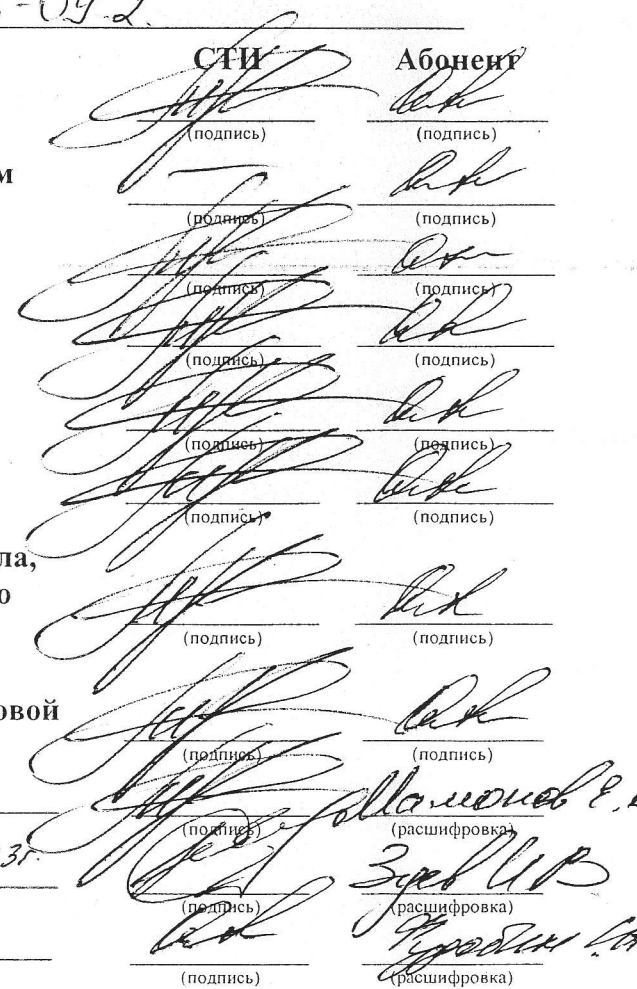 -09.2.
СТИ Абонент
(подпись) (подпись)
м
(подпись) (подпись)
(подпись) (подпись)
(подпись) (подпись)
(подпись) (подпись)
(подпись) (подпись)
ла,
о
(подпись) (подпись)
овой
(подпись) (подпись)
Мамонов Е.
(подпись) (расшифровка)
3г. Зуев И В
(подпись) (расшифровка)
(подпись) (расшифровка)